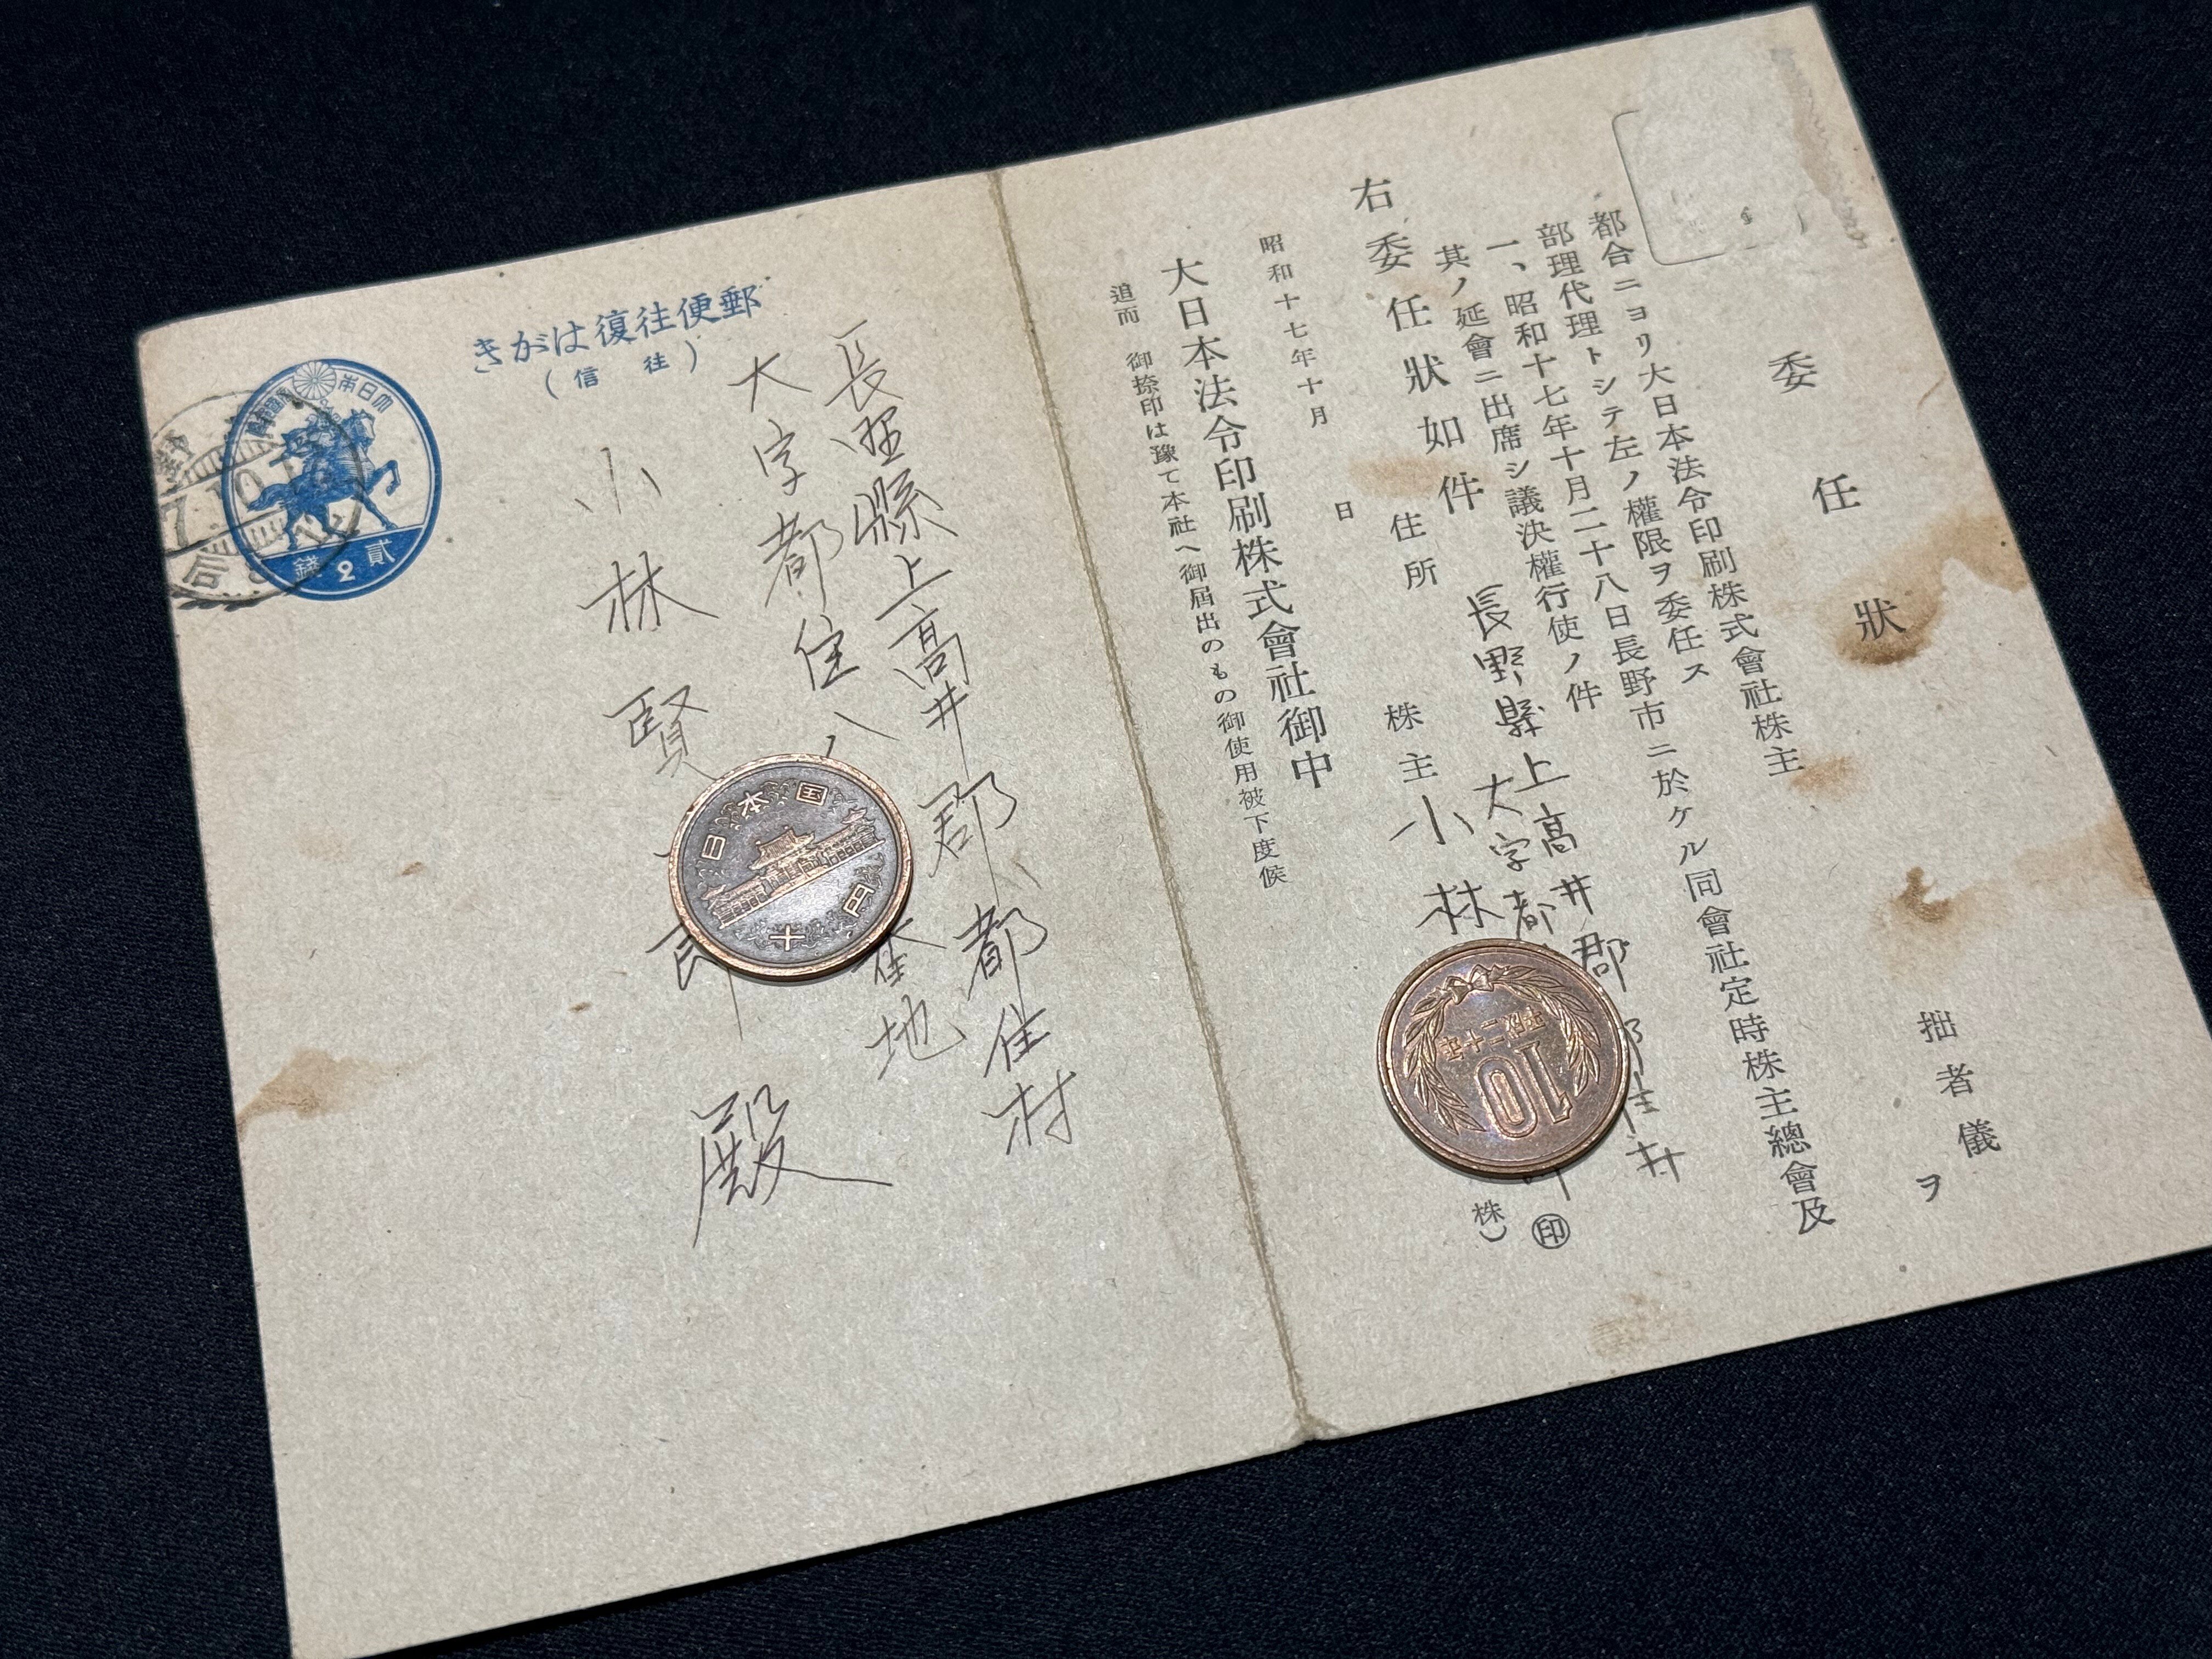 委任狀
拙者儀
ヲ
都合ニヨリ大日本法令印刷株式會社株主
部理代理トシテ左ノ權限ヲ委任ス
一、昭和十七年十月二十八日長野市ニ於ケル同會社定時株主總會及
其ノ延會ニ出席シ議決權行使ノ件
右委任狀如件
昭和十七年十月 日
住所 長野縣上高井郡
大字都
株主 小林
㊞
(株)
大日本法令印刷株式會社御中
追而 御捺印は豫て本社へ御屆出のもの御使用被下度候
10
郵便往復はがき
(往信)
大日本
貳2錢
7.10
后
長野縣上高井郡都住村
大字都住八
番地
小林賢
殿
日本国
十円